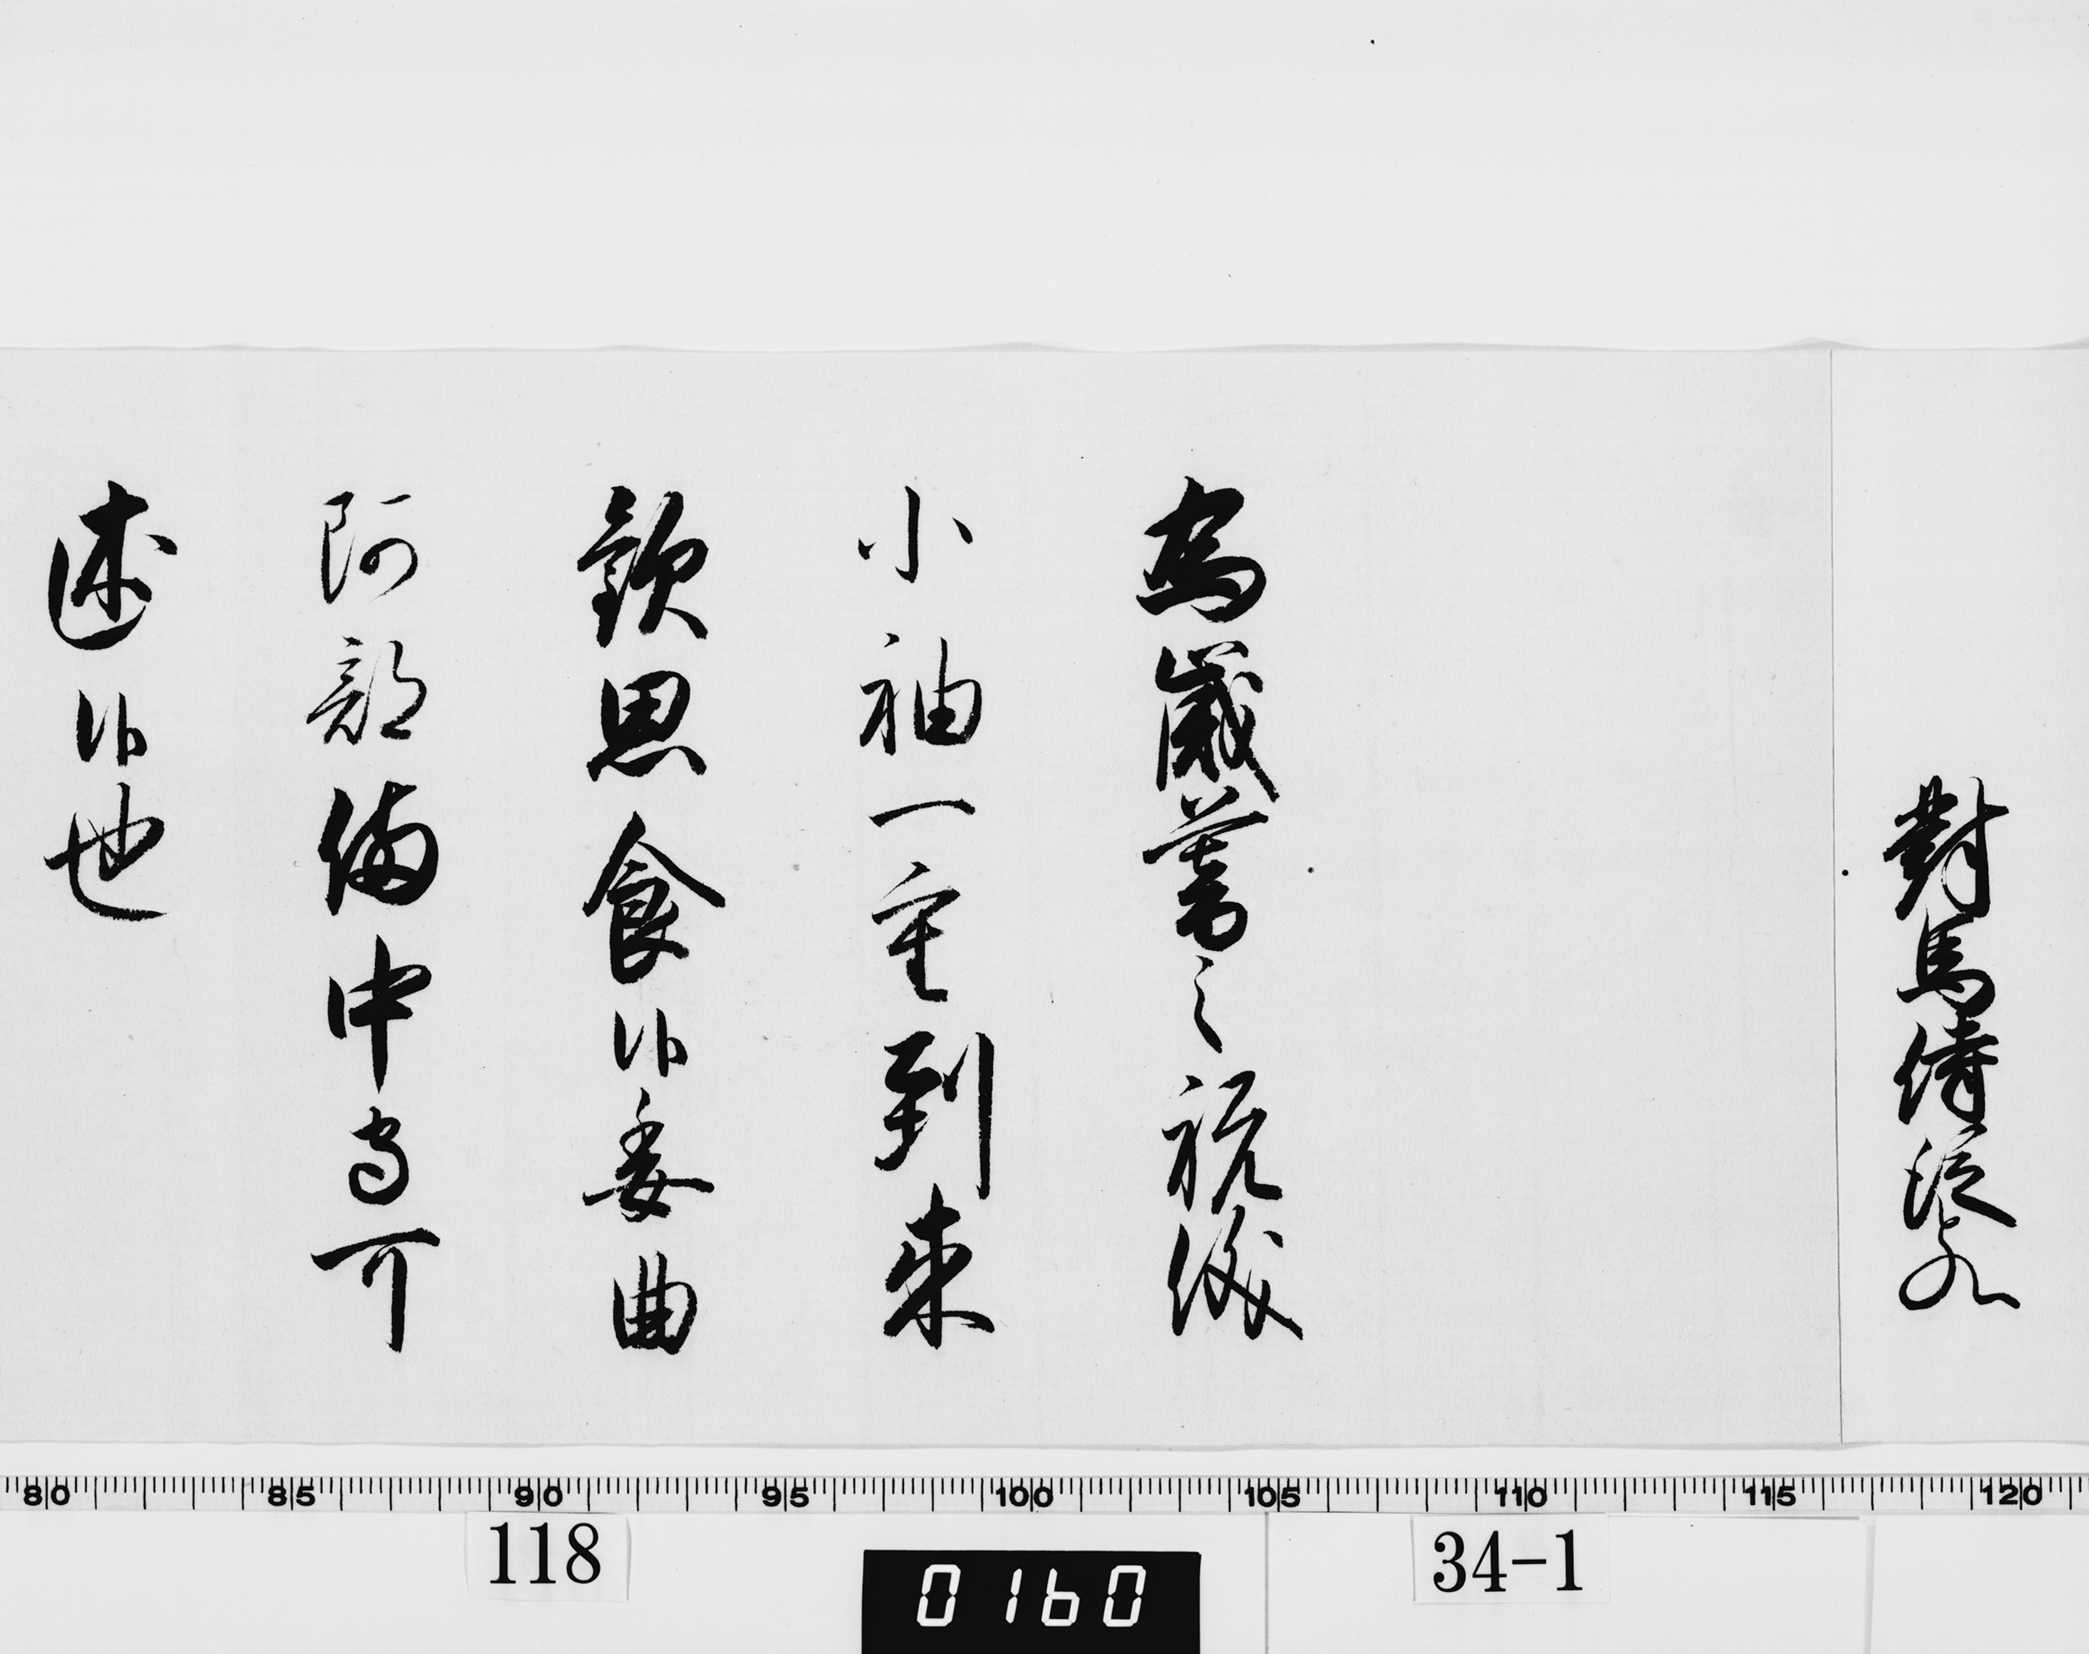 對馬侍従とのへ
為歳暮之祝儀
小袖一重到来
歓思食候委曲
阿部備中守可
述候也
80 85 90 95 100 105 110 115 120
118
0160
34-1